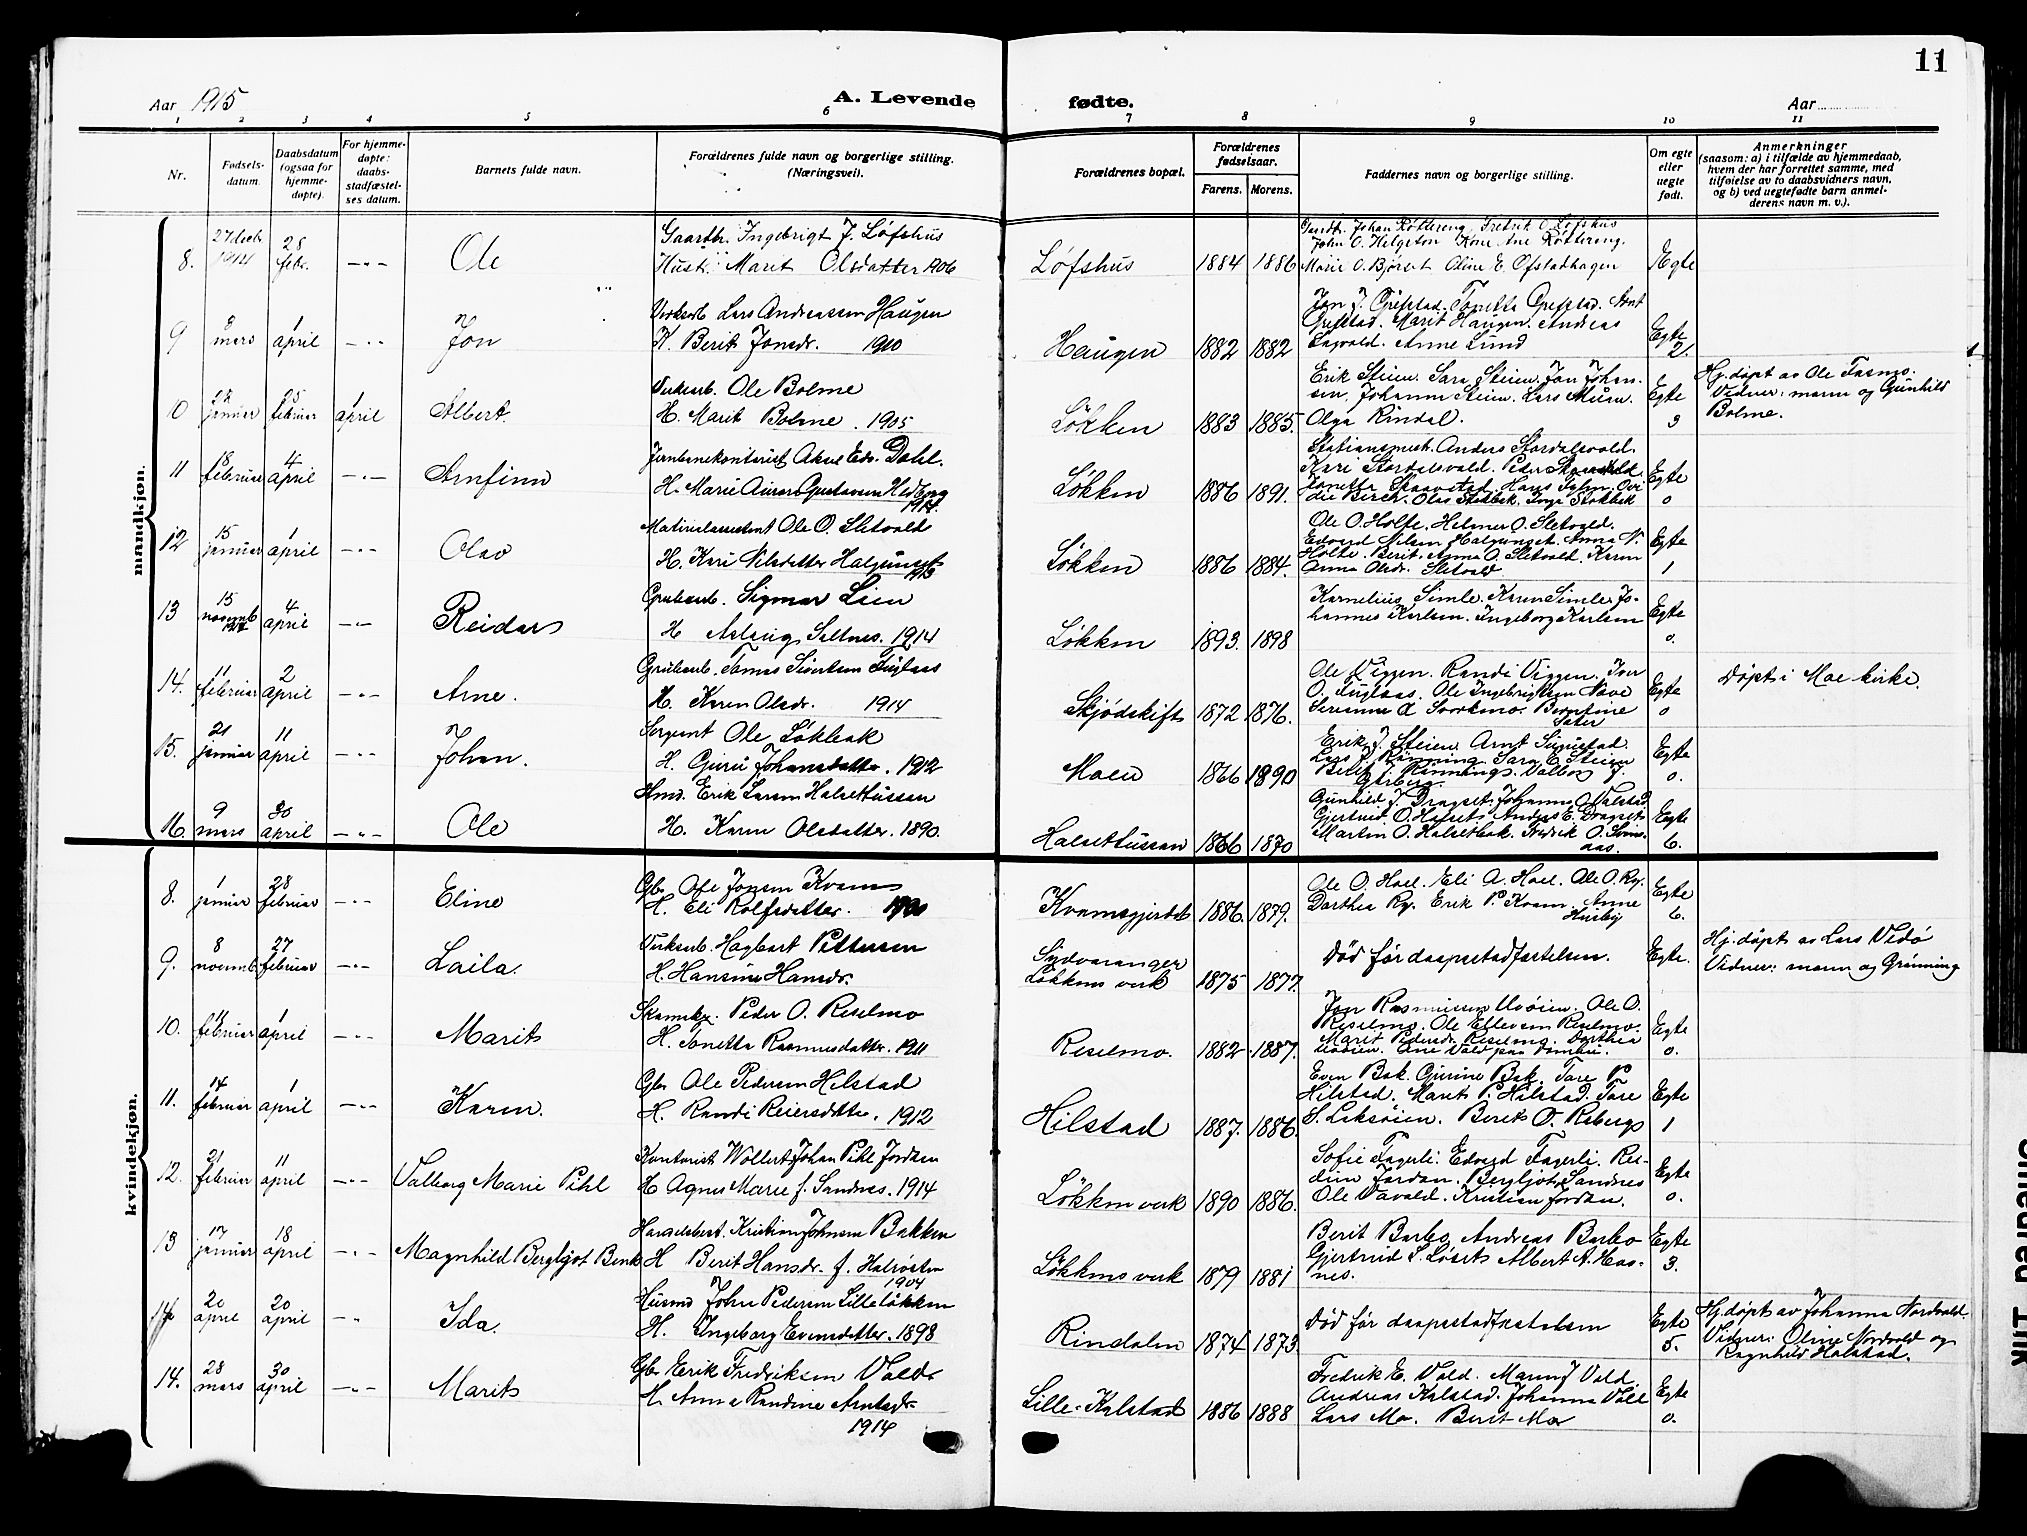 11
Aar 1915
A. Levende fødte.
Aar
1 2 3 4 5 6 7 8 9 10 11
Nr.
Fødsels-
datum.
Daabsdatum
(ogsaa for
hjemme-
døpte).
For hjemme-
døpte:
daabs-
stadfæstel-
ses datum.
Barnets fulde navn.
Forældrenes fulde navn og borgerlige stilling.
(Næringsvei).
Forældrenes bopæl.
Forældrenes
fødselsaar.
Farens. Morens.
Faddernes navn og borgerlige stilling.
Om egte
eller
uegte
født.
Anmerkninger
(saasom: a) i tilfælde av hjemmedaab,
hvem der har forrettet samme, med
tilføielse av to daabsvidners navn,
og b) ved uegtefødte barn anmel-
derens navn m. v.).
mandkjøn.
8. 27 decb. 1914 28 febr. Ole
Gaardbr. Ingebrigt J. Løfshus
Hustr. Marit Olsdatter 1906
Løfshus 1884 1886
Gaardbr. Johan Røttereng, Fredrik O. Løfshus
John O. Helgeton Kone Ane Røttereng.
Marie O. Bjørset Oline E. Ofstadhagen
Egte
9 9 mars 1 april Jon
Verksarb. Lars Andreassen Haugen
H. Berit Jonsdr. 1910
Haugen 1882 1882
Jon J. Grefstad. Tonetta Grefstad. Arnt
Grefstad. Marit Haugen. Andreas
Lagvold. Anne Lund
Egte 2.
10 22 januar 25 februar 1 april Albert.
Verksarb. Ole Bolme
H. Marit Bolme. 1905
Løkken 1883 1885.
Erik Steien. Sara Steien. Jon Johan-
sen. Johanna Steien. Lars Moen.
Olga Rindal.
Egte 3
Hj. døpt av Ole
Vidner: mann og Gunhild
Bolme.
11 18 februar 4 april Arnfinn
Jernbanekontorist Edv. Dahl.
H. Marie Aurora Gustavson Hedberg
1914.
Løkken 1886 1891.
Stationsmest. Anders Stordalsvold.
Kari Stordalsvold. Peder
Tonetta Skaarstad. Hans
Birch. Olav Stokbak. Inga Stokbak
Egte 0
12 15 januar 1 april Olav
Materialassistent Ole O. Sletvold
H. Kari Nilsdatter
1913
Løkken 1886 1884.
Ole O. Holte. Helmer O. Sletvold.
Edvard Nilsen Anna N.
Holte. Berit Anna O. Sletvold. Karen
Anna Olsdr. Sletvold
Egte 1
13 15 novemb. 1914 4 april Reidar
Grubearb. Sigmar Lien
H. Aslaug Saltnes. 1914
Løkken 1893. 1898
Kornelius Simle. Karen Simle. Jo-
hannes Karlsen. Ingeborg Karlsen
Egte 0.
14. 11 februar 2 april Arne.
Grubearb. Tomas Sivertsen Fuglaas
H. Karen Olsdr. 1914
Skjødskift 1872 1876.
Ole Viggen. Randi Viggen. Iver
O. Fuglaas. Ole Ingebrigtsen Nave
Svorkmo. Berntine
Sæter
Egte 0
Døpt i Moe kirke.
15. 21 januar 11 april Johan.
Sergeant Ole Løkbak
H. Guru Johansdatter. 1912
Moen 1866 1890
Erik J. Steien. Arnt
Lars J. Rønning. Sara E. Steien
Berit J. Rønnings. Valborg J.
Garberg.
Egte 0.
16. 9 mars 30 april Ole
Hmd. Erik Larsen Halsettussan
H. Karen Olsdatter. 1890.
Halsettussan 1866 1870
Gunhild J. Dragset. Johannes O. Valstad
Gjertrud O. Halsets. Anders E. Dragset
Martin O. Halsetbak. Fredrik O. Soms-
aas.
Egte 6.
kvindekjøn.
8. 1 januar 28 februar Eline
Gbr. Ole Jonsen Kvam
H. Eli Rolfsdatter. 1900
Kvamsgjerdet 1886. 1879.
Ole O. Hoel. Eli A. Hoel. Ole O. Ry.
Dorthea Ry. Erik P. Kvam. Anne
Husby
Egte 6.
9. 8 novemb. 27 februar Laila.
Verksarb. Hagbart Pettersen
H. Hansine Hansdr.
Sydvaranger
Løkkens verk 1875 1877.
Død før daapsstadfæstelsen.
Egte.
Hj. døpt av Lars Vedø
Vidner: mann og Grønning
10. 11 februar 1 april Marit
Skomaker. Peder O. Reselmo
H. Tonetta Rasmusdatter. 1911
Reselmo. 1882 1887.
Jon Rasmussen Uvøien. Ole O.
Reselmo. Ole Ellevsen Reselmo.
Marit Pedersdr. Reselmo. Dorthea
Uvøien. Ane Vold paa Dombu.
Egte 0.
11. 14 februar 1 april Karen.
Gbr. Ole Pedersen Hilstad
H. Randi Reiersdatter. 1912
Hilstad 1887. 1886.
Even Bak. Gurine Bak. Tore P.
Hilstad. Marit P. Hilstad. Tore
S. Laksøien. Berit O. Risberg
Egte 1
12. 21 februar 11 april Valborg Marie Pihl
Kontorist Wollert Johan Pihl Jordan
H. Agnes Marie f. Sandnes. 1914
Løkken verk 1890 1886.
Sofie Fagerli. Edvard Fagerli. Res-
dine Jordan. Bergljot Sandnes
Ole Vavold. Kristian Jordan.
Egte 0.
13 17 januar 18 april Magnhild Bergljot Benk
Kristian Johnsen Bakken
H Berit Hansdr. f. Halvøsten
1904
Løkkens verk 1879 1881
Berit Barbo. Andreas Barbo
Gjertrud L. Løsets Albert A. Haas-
nes.
Egte 3.
14 20 april 20 april Ida.
Husmd John Pedersen Lilleløkken
H. Ingeborg Evensdatter. 1898
Rindalen 1874 1873.
Død før daapsstadfæstelsen
Egte 5.
Hj. døpt av Johanna Nordvald.
Vidner: Oline Nordvald og
Ragnhild Halstad.
14. 28 mars 30 april Marit
Gbr. Erik Fredriksen Vold
H. Anne Randine Arntsdr.
1914
Lille-Kalstad 1886 1888
Fredrik E. Vold. Maren J. Vold
Andreas Kalstad. Johanna Vold
Lars Mo. Berit Mo
Egte 0.